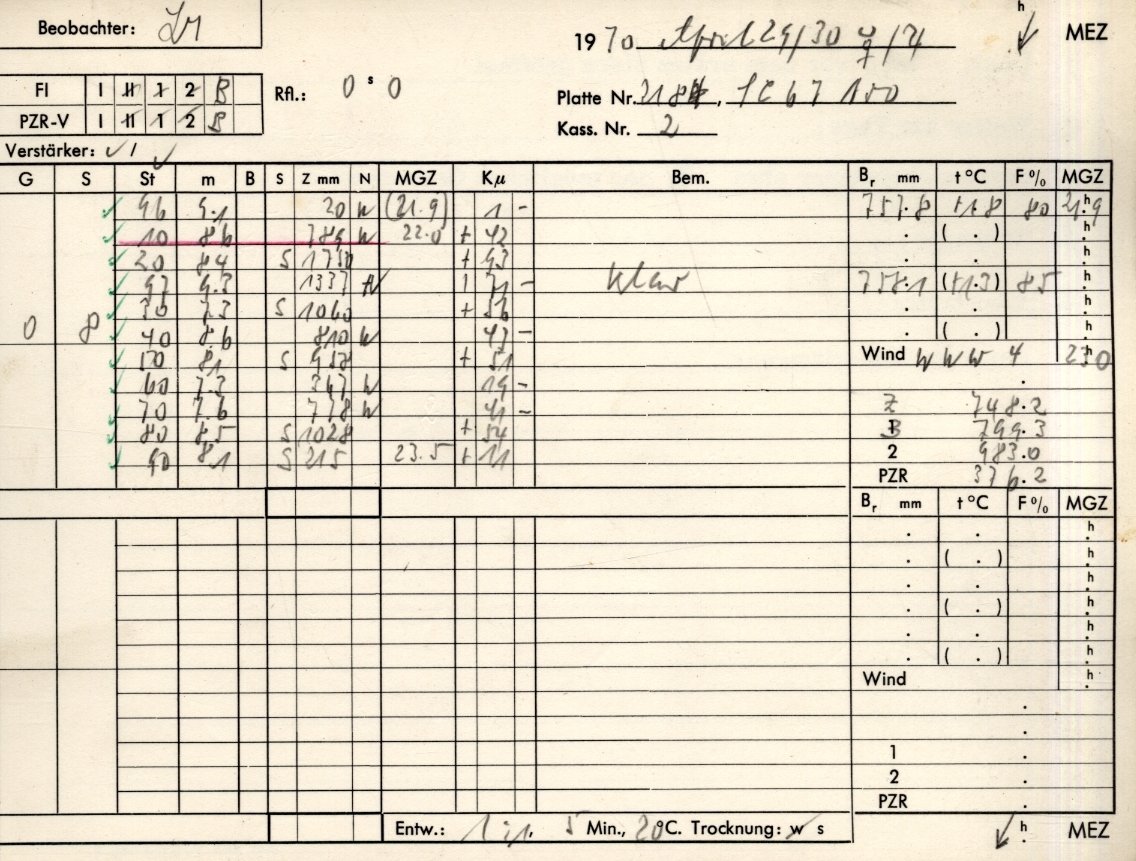 Beobachter:
1970 April 29/30 h MEZ
FI I II 1 2 B
Rfl.: 0 s 0
Platte Nr.
PZR-V I II 1 2 B
Kass. Nr. 2
Verstärker: √ 1
G S St m B S Z mm N MGZ Kμ Bem. Br mm t °C F% MGZ
96 9.1 20 N (21.9) 1 - 757.8 +1.8 80 21.9 h
10 8.6 789 N 22.0 + 42 ( . ) h
20 8.4 S 1750 + 93 h
97 9.3 1337 N 71 - klar 758.1 (+1.3) 85 h
30 7.3 S 1060 + 56 h
0 8 40 8.6 810 N 43 - ( . ) h
50 8.1 S 958 + 51 Wind 4 23.0 h
60 7.3 367 N 19 -
70 7.6 778 N 41 - Z 748.2
80 8.5 S 1028 + 54 B 799.3
90 8.1 S 215 23.5 + 11 2 983.0
PZR 376.2
Br mm t °C F% MGZ
. . h
. ( . ) h
. . h
. ( . ) h
. . h
. ( . ) h
Wind h
1 .
2 .
PZR .
Entw.: 5 Min., 20 °C. Trocknung: w s h MEZ